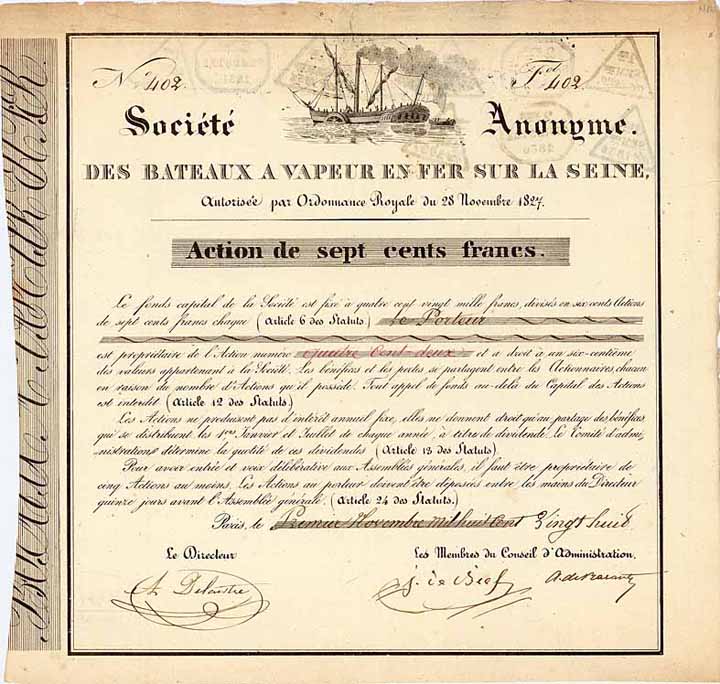 N° 402.
F.ol 402
Société Anonyme.
DES BATEAUX A VAPEUR EN FER SUR LA SEINE,
Autorisée par Ordonnance Royale du 28 Novembre 1827.
Action de sept cents francs.
Le fonds capital de la Société est fixé à quatre cent vingt mille francs, divisés en six cents Actions
de sept cents francs chaque (Article 6 des Statuts.) Le Porteur
est propriétaire de l'Action numéro quatre Cent deux et a droit à un six-centième
des valeurs appartenant à la Société. Les bénéfices et les pertes se partagent entre les Actionnaires chacun
en raison du nombre d'Actions qu'il possède. Tout appel de fonds au-delà du Capital des Actions
est interdit (Article 12 des Statuts.)
Les Actions ne produisent pas d'intérêt annuel fixe, elles ne donnent droit qu'au partage des bénéfices
qui se distribuent les 1ers Janvier et Juillet de chaque année, à titre de dividende. Le Comité d'admi-
nistration détermine la quotité de ces dividendes (Article 13 des Statuts)
Pour avoir entrée et voix délibérative aux Assemblées générales, il faut être propriétaire de
cinq Actions au moins. Les Actions au porteur doivent être déposées entre les mains du Directeur
quinze jours avant l'Assemblée générale. (Article 24 des Statuts.)
Paris, le Premier Novembre mil huit Cent Vingt huit
Le Directeur
Les Membres du Conseil d'Administration.